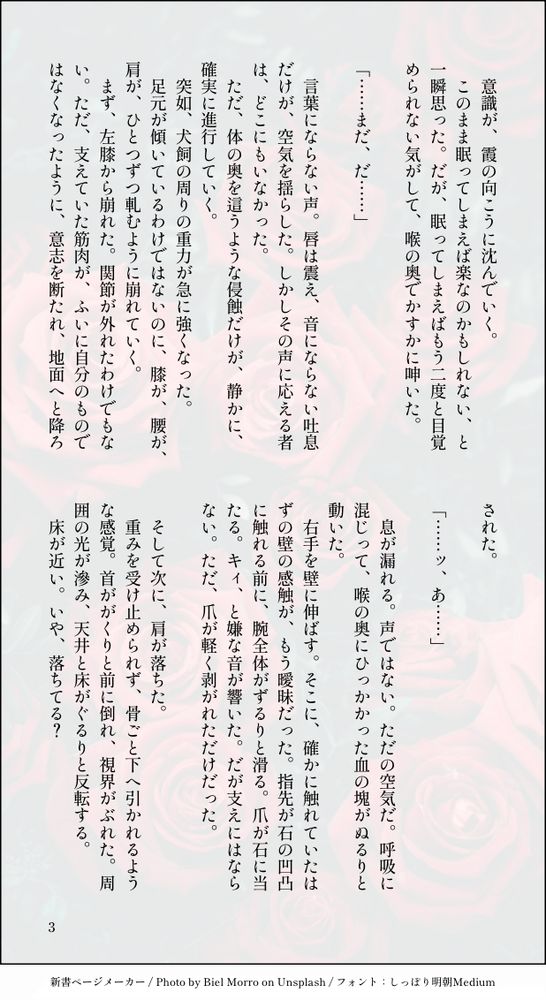 意識が、霞の向こうに沈んでいく。
このまま眠ってしまえば楽なのかもしれない、と
一瞬思った。だが、眠ってしまえばもう二度と目覚
められない気がして、喉の奥でかすかに呻いた。
「……まだ、だ……」
言葉にならない声。唇は震え、音にならない吐息
だけが、空気を揺らした。しかしその声に応える者
は、どこにもいなかった。
ただ、体の奥を這うような侵蝕だけが、静かに、
確実に進行していく。
突如、犬飼の周りの重力が急に強くなった。
足元が傾いているわけではないのに、膝が、腰が、
肩が、ひとつずつ軋むように崩れていく。
まず、左膝から崩れた。関節が外れたわけでもな
い。ただ、支えていた筋肉が、ふいに自分のもので
はなくなったように、意志を断たれ、地面へと降ろ
された。
「……ッ、あ……」
息が漏れる。声ではない。ただの空気だ。呼吸に
混じって、喉の奥にひっかかった血の塊がぬるりと
動いた。
右手を壁に伸ばす。そこに、確かに触れていたは
ずの壁の感触が、もう曖昧だった。指先が石の凹凸
に触れる前に、腕全体がずるりと滑る。爪が石に当
たる。キィ、と嫌な音が響いた。だが支えにはなら
ない。ただ、爪が軽く剥がれただけだった。
そして次に、肩が落ちた。
重みを受け止められず、骨ごと下へ引かれるよう
な感覚。首ががくりと前に倒れ、視界がぶれた。周
囲の光が滲み、天井と床がぐるりと反転する。
床が近い。いや、落ちてる？
3
新書ページメーカー / Photo by Biel Morro on Unsplash / フォント：しっぽり明朝Medium